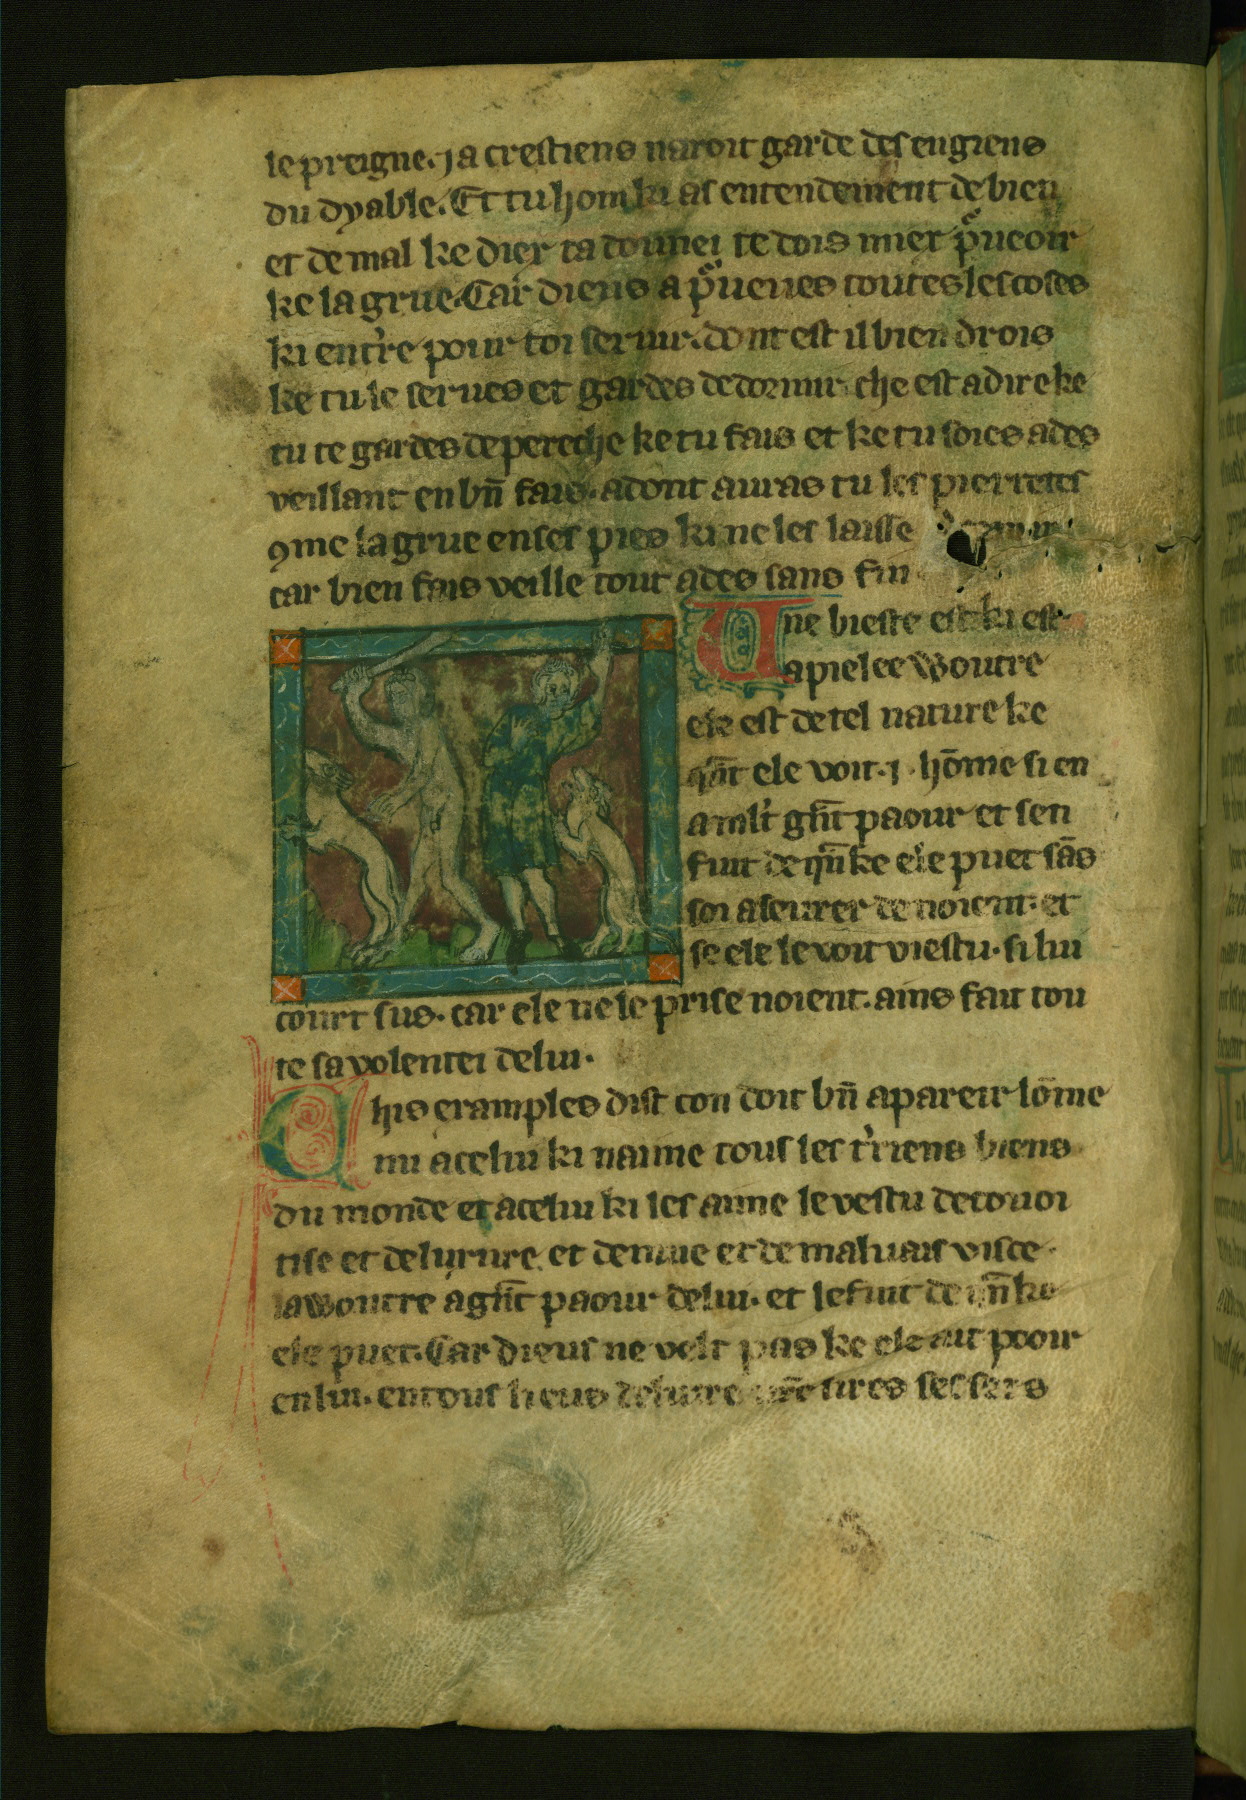 le preigne. ja crestiens naroit garde des engiens
du dyable. Et tu hom ki as entendement de bien
et de mal ke diex ta donnei te dois miex pͣueoir
ke la grue. Car diens a pͣueues toutes les coses
ki en tr̓re pour toi seruir. dont est il bien drois
ke tu le serues et gardes de dormir che est a dire ke
tu te gardes de pereche ke tu fais et ke tu soies ades
veillant en bn̄ fais. adont auras tu les pierretes
ꝯme la grue en ses pies ki ne les laisse
car bien fais veille tout ades sans fin
Une bieste est ki est
apielee woutre
ele est de tel nature ke
qͣnt ele voit .j. hōme si en
a mlt̓ gn̄t paour et sen
fuit de qn̄ke ele puet sās
soi aseurer de noient. et
se ele le voit viestu. si lui
court sus. car ele ne le prise noient. ains fait tou
te sa volentei de lui.
Chis examples dist con doit bn̄ apareir lōme
nu a celui ki naime tous les tr̓riens biens
du monde et a celui ki les aime le vestu de couoi
tise et de luxure et denuie et de maluais visce.
la woutre a gn̄t paour de lui. et le fuit de qn̄ke
ele puet. Car dieus ne velt pas ke ele ait pooir
en lui. en tous lieus deliure nr̄e sires ses sers